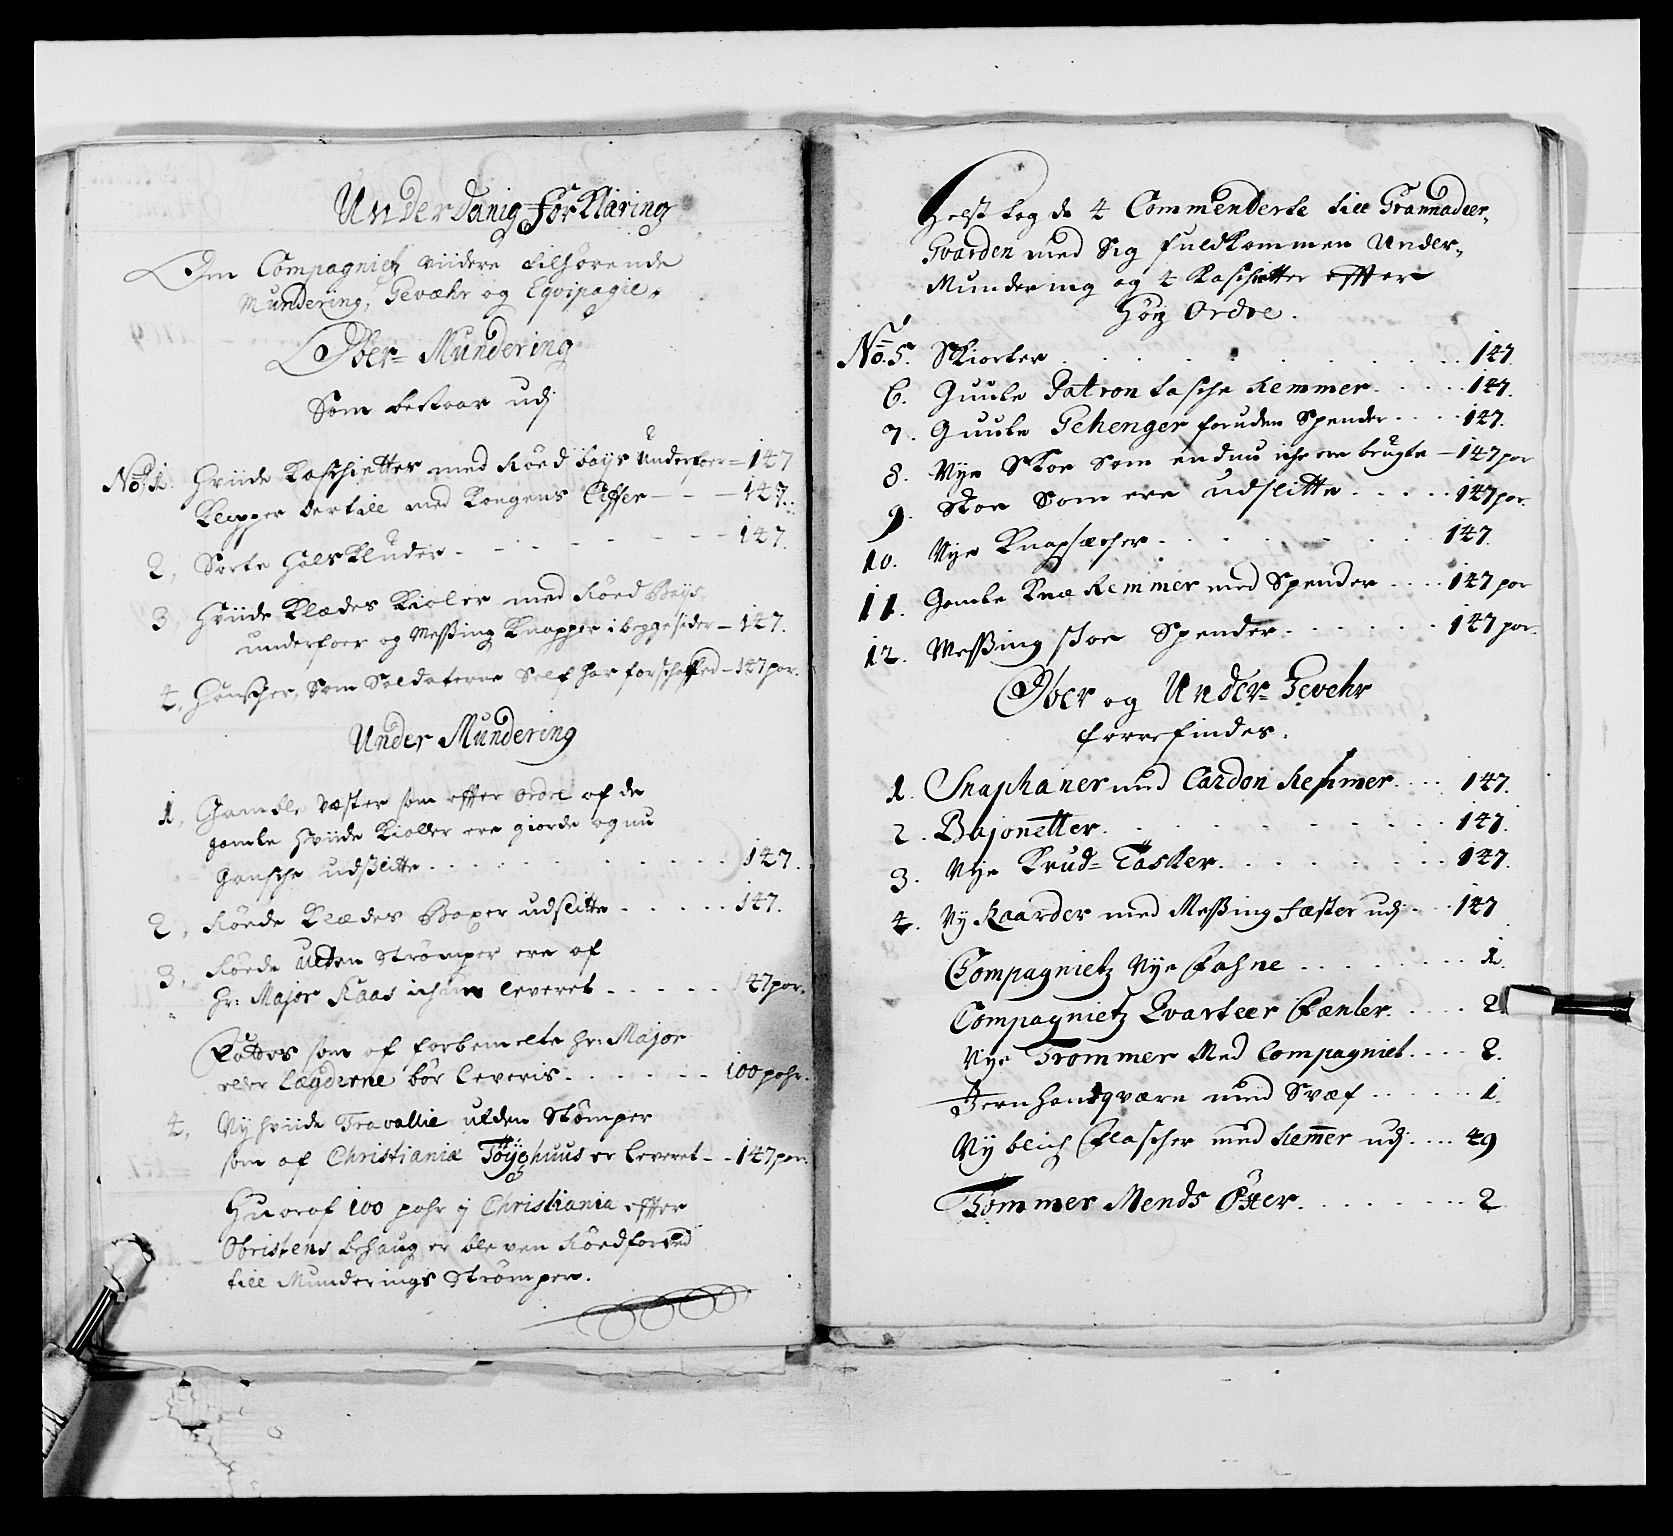 Underdanig forklaring
Om Compagniet viidere tilhørende
Mundering, Gevæhr og Eqvipagie.
Ober= Mundering
Som bestaar udj
No: 1. Hviide Kaschietter med Röed bays Underfoer = 147
Klapper dertill med Kongens Ciffer - - - 147.
2, Sorte Halskluder - - - - - - - 147.
3, Hviide Klædes Kioler med Röed Bays
underfoer og Messing Knapper i begge sider - 147.
4, Handsker, Som Soldaterne Self har forschaffed - 147 par.
Under Mundering
1, Gamble Væster som effter ordre af de
gamle Hviide Kioller ere giorde og nu
Gansche udslitte . . . . . . . . . 147.
2, Röede Klædes Boxer udslitte . . . . . 147.
3, Röede Ulden Strömper ere af
Hr: Major Kaas leveret . . . . . 147 par.
som af forbemelte Hr: Major
eller Lægderne bör leveris . . . . . . 100 pahr.
4, Ny hviide Travallie ulden Stömper
som af Christianiæ Töyghuus er leveret - - 147 par.
Huoraf 100 pahr j Christiania effter
Obristens behaug er bleven Röedfarved
till Munderings Strömper.
Helst tog de 4 Commenderte till Grannadeer,,
Gvarden med Sig fuldkommen Under,,
Mundering og 4 Kaschietter effter
Höy Ordre.
No. 5. Skiorter . . . . . . . . . 147.
6. Guule Patron tasche Remmer . . . . . 147.
7. Guule Gehenger foruden Spender . . . . 147.
8. Nye Skoe Som endnu iche ere brugte - 147 par
9. Skoe Som ere udslitte . . . . . 147 par.
10. Nye Knapsæcher . . . . . . . 147.
11. Gamle Knæ Remmer med Spender . . . . 147 par
12. Messing skoe Spender . . . . . . 147 par.
Ober og Under= Gevehr
forrefindes.
1. Snaphaner med Cardon Remmer . . . 147.
2. Bajonetter . . . . . . . . . 147.
3. Nye Krud= Tasker . . . . . . . 147.
4. Ny Kaarder med Messing fæster udj . . . 147
Compagnietz Nye Fahne . . . . . . . 1.
Compagnietz Qvarteer Fænler . . . . . 2.
Nye Trommer Med Compagniet . . . . 2.
Jern handqværn med Svæf . . . . . . 1.
Ny blich Flascher med Remmer udj . . . 49
Tömmer Mends Öxer . . . . . . . . 2